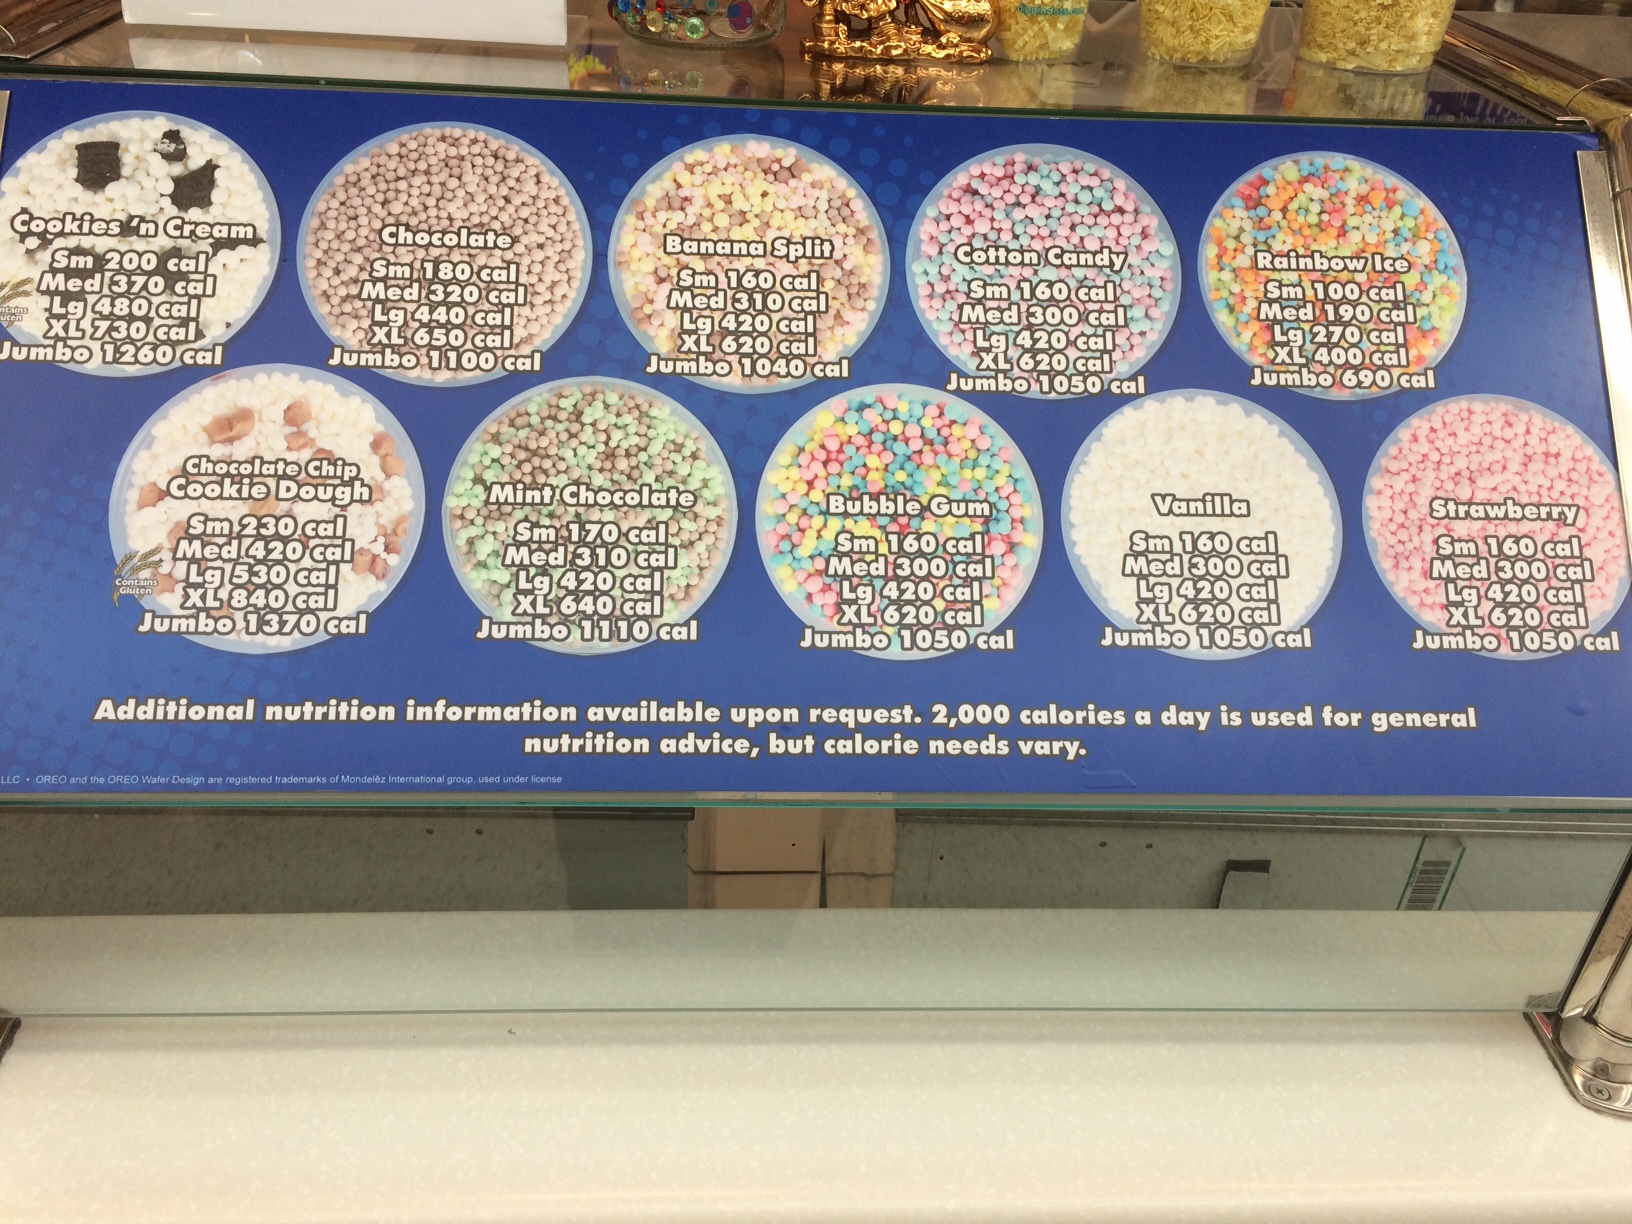 dippindots.com
Cookies 'n Cream
Sm 200 cal
Med 370 cal
Lg 480 cal
XL 730 cal
Jumbo 1260 cal
Chocolate
Sm 180 cal
Med 320 cal
Lg 440 cal
XL 650 cal
Jumbo 1100 cal
Banana Split
Sm 160 cal
Med 310 cal
Lg 420 cal
XL 620 cal
Jumbo 1040 cal
Cotton Candy
Sm 160 cal
Med 300 cal
Lg 420 cal
XL 620 cal
Jumbo 1050 cal
Rainbow Ice
Sm 100 cal
Med 190 cal
Lg 270 cal
XL 400 cal
Jumbo 690 cal
Chocolate Chip
Cookie Dough
Sm 230 cal
Med 420 cal
Lg 530 cal
XL 840 cal
Jumbo 1370 cal
Contains
Gluten
Mint Chocolate
Sm 170 cal
Med 310 cal
Lg 420 cal
XL 640 cal
Jumbo 1110 cal
Bubble Gum
Sm 160 cal
Med 300 cal
Lg 420 cal
XL 620 cal
Jumbo 1050 cal
Vanilla
Sm 160 cal
Med 300 cal
Lg 420 cal
XL 620 cal
Jumbo 1050 cal
Strawberry
Sm 160 cal
Med 300 cal
Lg 420 cal
XL 620 cal
Jumbo 1050 cal
Additional nutrition information available upon request. 2,000 calories a day is used for general
nutrition advice, but calorie needs vary.
LLC • OREO and the OREO Wafer Design are registered trademarks of Mondelēz International group, used under license